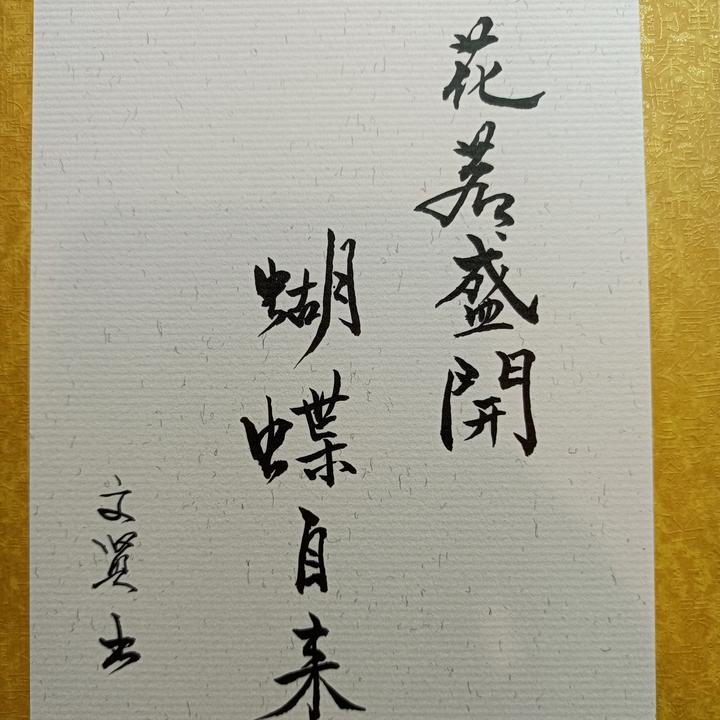 花若盛開
蝴蝶自来
文賢书